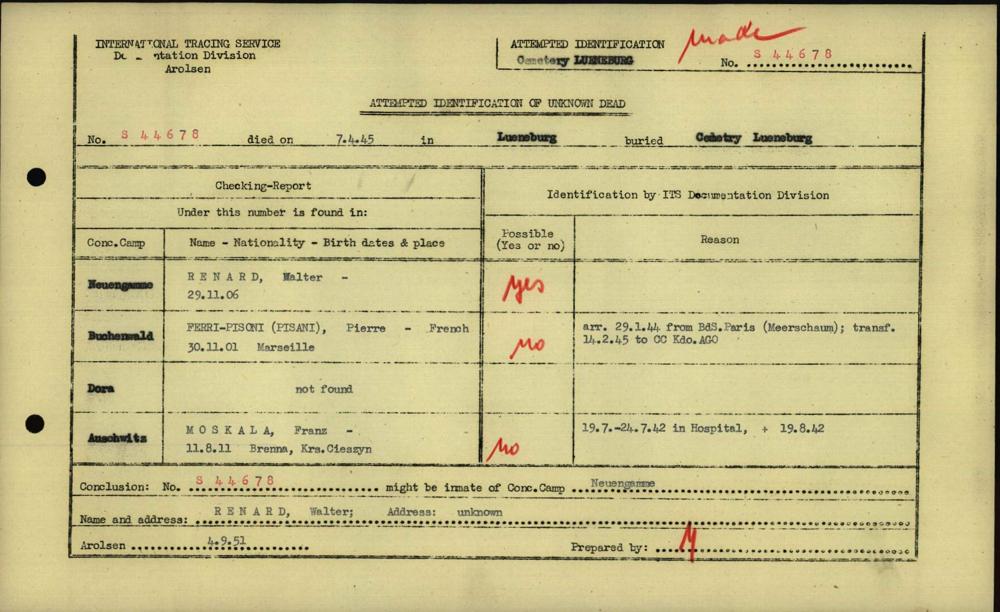 INTERNATIONAL TRACING SERVICE
Documentation Division
Arolsen
ATTEMPTED IDENTIFICATION
Cemetery LUENEBURG
made
No. S 44678
ATTEMPTED IDENTIFICATION OF UNKNOWN DEAD
No. S 44678 died on 7.4.45 in Lueneburg buried Cemetry Lueneburg
Checking-Report
Under this number is found in:
Identification by ITS Documentation Division
Conc.Camp
Name - Nationality - Birth dates & place
Possible
(Yes or no)
Reason
Neuengamme
RENARD, Walter -
29.11.06
yes
Buchenwald
FERRI-PISONI (PISANI), Pierre - French
30.11.01 Marseille
no
arr. 29.1.44 from BdS.Paris (Meerschaum); transf.
14.2.45 to CC Kdo.AGO
Dora
not found
Auschwitz
MOSKALA, Franz -
11.8.11 Brenna, Krs.Cieszyn
no
19.7.-24.7.42 in Hospital, + 19.8.42
Conclusion: No. S 44678 might be inmate of Conc.Camp Neuengamme
Name and address: RENARD, Walter; Address: unknown
Arolsen 4.9.51
Prepared by: